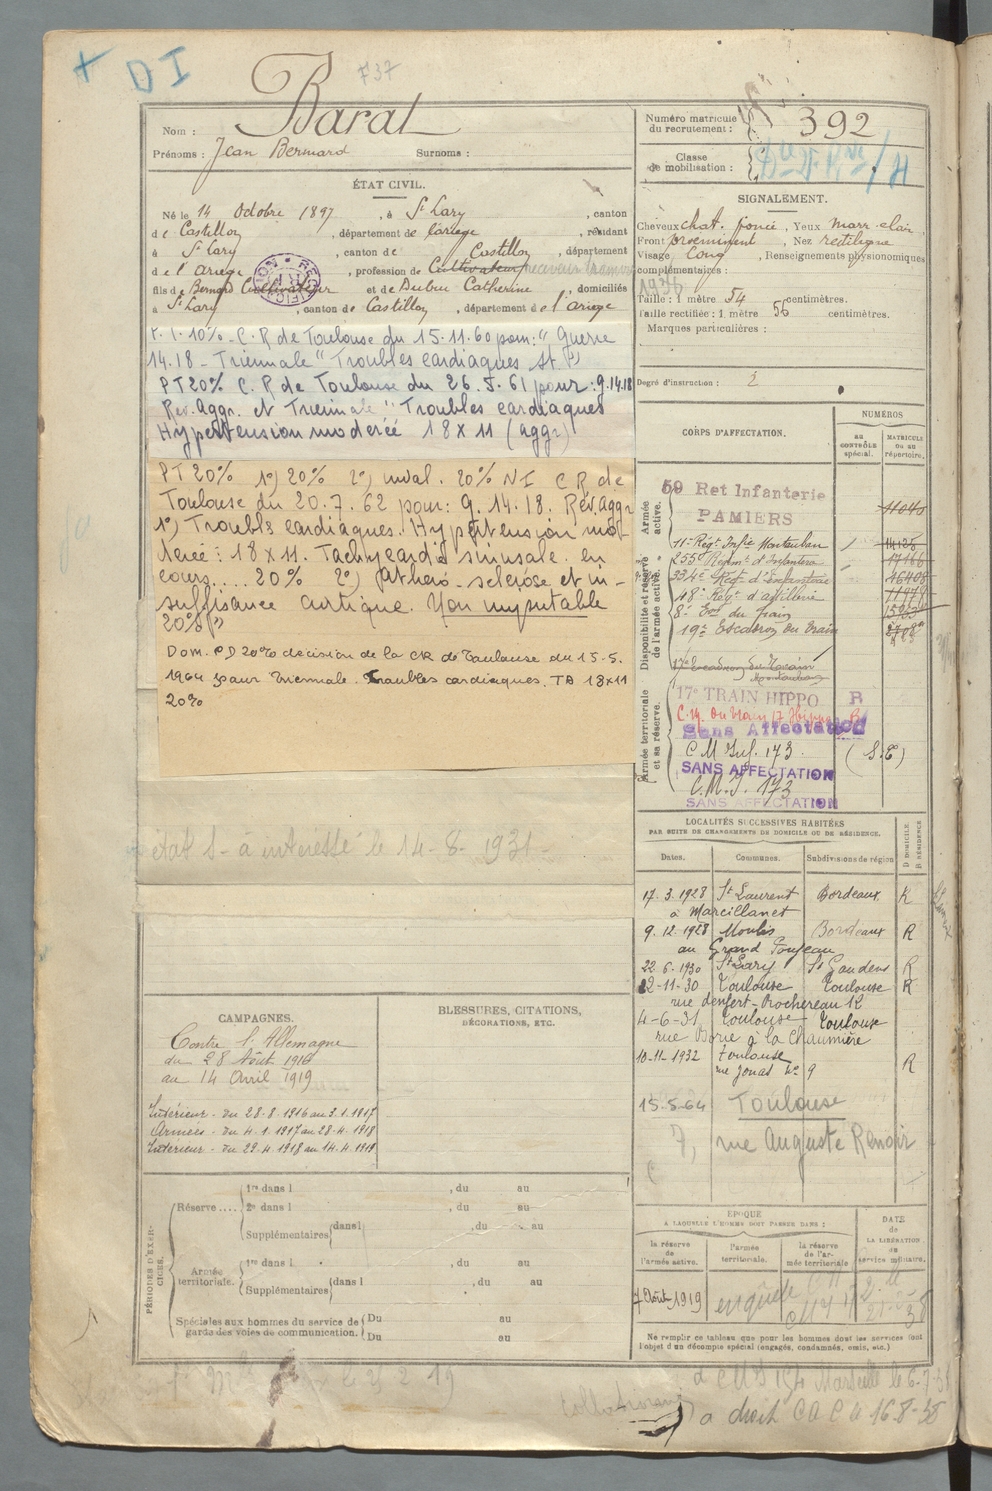 + DI
737
Nom : Barat
Prénoms : Jean Bernard Surnoms :
Numéro matricule du recrutement : 392
Classe de mobilisation :
ÉTAT CIVIL.
Né le 14 Octobre 1897, à St Lary, canton
de Castillon, département de l'ariege, résidant
à St Lary, canton de Castillon, département
de l'Ariege, profession de Cultivateur receveur tramways
fils de Bernard Cultivateur et de Dubuc Catherine, domiciliés
à St Lary, canton de Castillon, département de l'ariege
P. T. 10% - C. R de Toulouse du 15.11.60 pour: " Guerre
14.18 - Triennale " Troubles cardiaques
PT 20% C. R de Toulouse du 26.5.61 pour: g.14.18
Rev. Aggr. et Triennale " Troubles cardiaques
Hypertension moderée 18 x 11 (aggr)
PT 20% 1°) 20% 2°) inval. 20% NI C R de
Toulouse du 20.7.62 pour: g. 14.18. Rev. Aggr
1°) Troubles cardiaques. Hypertension mo
derée: 18 x 11. Tachycardie sinusale en
cours.... 20% 2°) Athero-sclérose et in-
suffisance aortique. Non imputable
20%
Dom. PD 20% décision de la CR de Toulouse du 15.5.
1964 pour triennale. Troubles cardiaques. TA 18x11
20%
état S - à intéressé le 14-8-1931 -
SIGNALEMENT.
Cheveux chat. foncé, Yeux marr. clair
Front proeminent, Nez rectiligne
Visage Long, Renseignements physionomiques
complémentaires :
1936
Taille : 1 mètre 54 centimètres.
Taille rectifiée : 1 mètre 56 centimètres.
Marques particulières :
Degré d'instruction : 2
CORPS D'AFFECTATION.
NUMÉROS
au CONTRÔLE spécial.
MATRICULE ou au répertoire.
Armée active.
59 Ret Infanterie
PAMIERS
Disponibilité et réserve de l'armée active.
11e Régt Infie Montauban
255e Régimt d'Infanterie
334e Régt d'Infanterie
18e Régt d'artillerie
8e Eson du train
19e Escadron du Train
17e Escadron du Train
Montauban
Armée territoriale et sa réserve.
17e TRAIN HIPPO R
Sans Affectation
C M Inf. 173 (S.E)
SANS AFFECTATION
C.M.I. 173
SANS AFFECTATION
LOCALITÉS SUCCESSIVES HABITÉES
PAR SUITE DE CHANGEMENTS DE DOMICILE OU DE RÉSIDENCE.
Dates. Communes. Subdivisions de région D DOMICILE R RÉSIDENCE
17.3.1928 St Laurent Bordeaux R
à Marcillanet
9.12.1928 Moulis Bordeaux R
au Grand Poujeau
22.6.1930 St Lary St Gaudens R
22-11-30 Toulouse Toulouse R
rue denfert-Rochereau 12
4-6-31 Toulouse Toulouse
rue Borie à la Chaumière
10-11-1932 Toulouse R
rue Jonas No 9
15.5.64 Toulouse
7, rue Auguste Renoir
CAMPAGNES.
Contre l'Allemagne
du 28 Août 1916
au 14 Avril 1919
Intérieur - du 28-8-1916 au 3.1.1917
Armées - du 4.1.1917 au 28.4.1918
Intérieur - du 29.4.1918 au 14.4.1919
BLESSURES, CITATIONS,
DÉCORATIONS, ETC.
PÉRIODES D'EXERCICES.
Réserve....
1re dans l , du au
2e dans l , du au
Supplémentaires dans l , du au
Armée territoriale.
1re dans l , du au
Supplémentaires dans l , du au
Spéciales aux hommes du service de garde des voies de communication.
Du au
Du au
ÉPOQUE
A LAQUELLE L'HOMME DOIT PASSER DANS :
la réserve de l'armée active.
l'armée territoriale.
la réserve de l'armée territoriale
DATE de LA LIBÉRATION du service militaire.
7 Août 1919
Ne remplir ce tableau que pour les hommes dont les services font
l'objet d'un décompte spécial (engagés, condamnés, omis, etc.)
Marseille le 6-7-
a droit CAC le 16-8-35